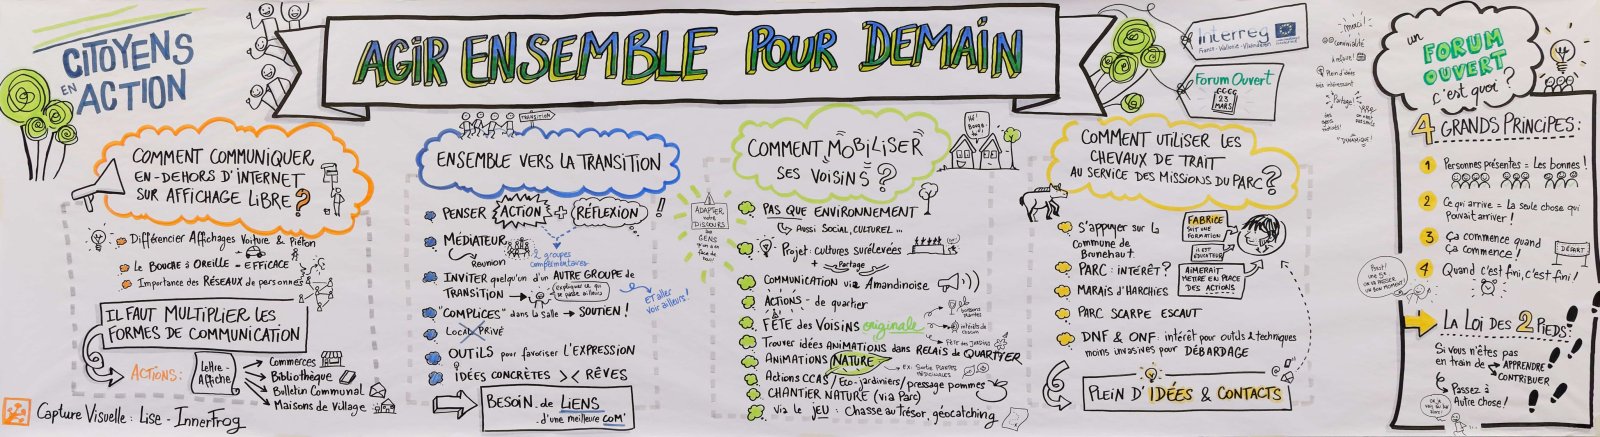 CITOYENS
EN
ACTION
AGIR ENSEMBLE POUR DEMAIN
Interreg
France-Wallonie-Vlaanderen
Forum Ouvert
23
MARS
Merci!
Convivialité
à refaire!
Plein d'idées
très intéressant
Partage!
"DYNAMIQUE"
COMMENT COMMUNIQUER
EN-DEHORS D'INTERNET
SUR AFFICHAGE LIBRE?
Différencier Affichages Voiture & Piéton
Le BOUCHE à OREILLE = EFFICACE
Importance des RÉSEAUX de personnes
IL FAUT MULTIPLIER LES
FORMES DE COMMUNICATION
ACTIONS:
Lettre-
Affiche
Commerces
Bibliothèque
Bulletin Communal
Maisons de Village
Capture Visuelle: Lise - InnerFrog
TRANSITION
ENSEMBLE VERS LA TRANSITION
PENSER ACTION + RÉFLEXION!
MÉDIATEUR
Réunion
2 groupes
complémentaires
INVITER quelqu'un d'un AUTRE GROUPE de
TRANSITION
expliquer ce qui
se passe ailleurs
ET aller
voir ailleurs!
"COMPLICES" dans la salle → SOUTIEN!
Local PRIVÉ
OUTILS pour favoriser L'EXPRESSION
IDÉES CONCRÈTES >< RÊVES
BESOIN de LIENS
d'une meilleure COM'
COMMENT MOBILISER
SES VOISINS?
ADAPTER
notre
DISCOURS
aux
GENS
qu'on a en
face de
nous!
PAS QUE ENVIRONNEMENT
AUSSI SOCIAL, CULTUREL...
Projet: cultures surélevées
+ Partage
COMMUNICATION via Amandinoise
ACTIONS - de quartier
FÊTE des VOISINS originale
intérêts de
chacun
FÊTE des JARDINS
Trouver idées ANIMATIONS dans RELAIS de QUARTIER
ANIMATIONS NATURE
Ex: Sortie PLANTES
MÉDICINALES
Actions CCAS / Éco-jardiniers/pressage pommes
CHANTIER NATURE (via Parc)
via le JEU: Chasse au trésor, géocatching
COMMENT UTILISER LES
CHEVAUX DE TRAIT
AU SERVICE DES MISSIONS DU PARC?
S'appuyer sur la
Commune de
Brunehaut
FABRICE
SUIT UNE
FORMATION
IL EST
ÉDUCATEUR
AIMERAIT
METTRE EN PLACE
DES ACTIONS
PARC: INTÉRÊT?
MARAIS D'HARCHIES
PARC SCARPE ESCAUT
DNF & ONF: intérêt pour outils & techniques
moins invasives pour DÉBARDAGE
PLEIN D'IDÉES & CONTACTS
un
FORUM
OUVERT
c'est quoi?
4 GRANDS PRINCIPES:
1 Personnes présentes = Les bonnes!
2 Ce qui arrive = La seule chose qui
Pouvait arriver!
3 Ça commence quand
Ça commence!
DÉPART
4 Quand c'est fini, c'est fini!
LA LOI DES 2 PIEDS!
Si vous n'êtes pas
en train de APPRENDRE
CONTRIBUER
Passez à
Autre chose!